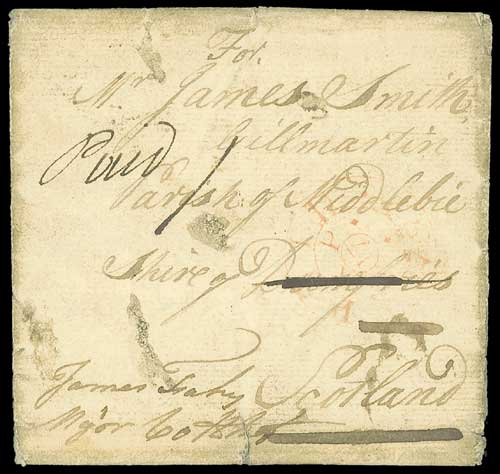 For.
Mr James Smith
Gillmartin
Paid
Parish of Middlebie
Shire of Dumfries
Scotland
James
Major